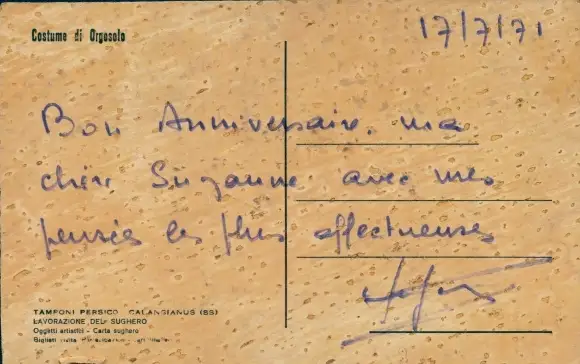 Costume di Orgosolo
17/7/71
Bon Anniversaire, ma
chère Suzanne avec mes
pensées les plus affectueuses
TAMPONI PERSICO - CALANGIANUS (SS)
LAVORAZIONE DEL SUGHERO
Oggetti artistici - Carta sughero
Biglietti visita